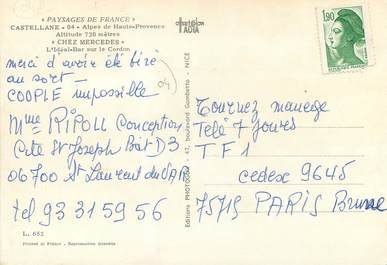 « PAYSAGES DE FRANCE »
CASTELLANE - 04 - Alpes de Haute-Provence
Altitude 728 mètres
« CHEZ MERCEDES »
L'Idéal-Bar sur le Cordon
merci d'avoir été tiré
au sort —
COOPLE impossible
Mme RIPOLL Conception
Cité St Joseph Bât D3
06700 St Laurent du VAR
tel 93 31 59 56
L. 652
Printed in France - Reproduction interdite
Editions PHOTOGUY - 47, boulevard Gambetta - NICE
1,90
Tournez manège
Télé 7 Jours
TF1
cedex 9645
75715 PARIS Brune